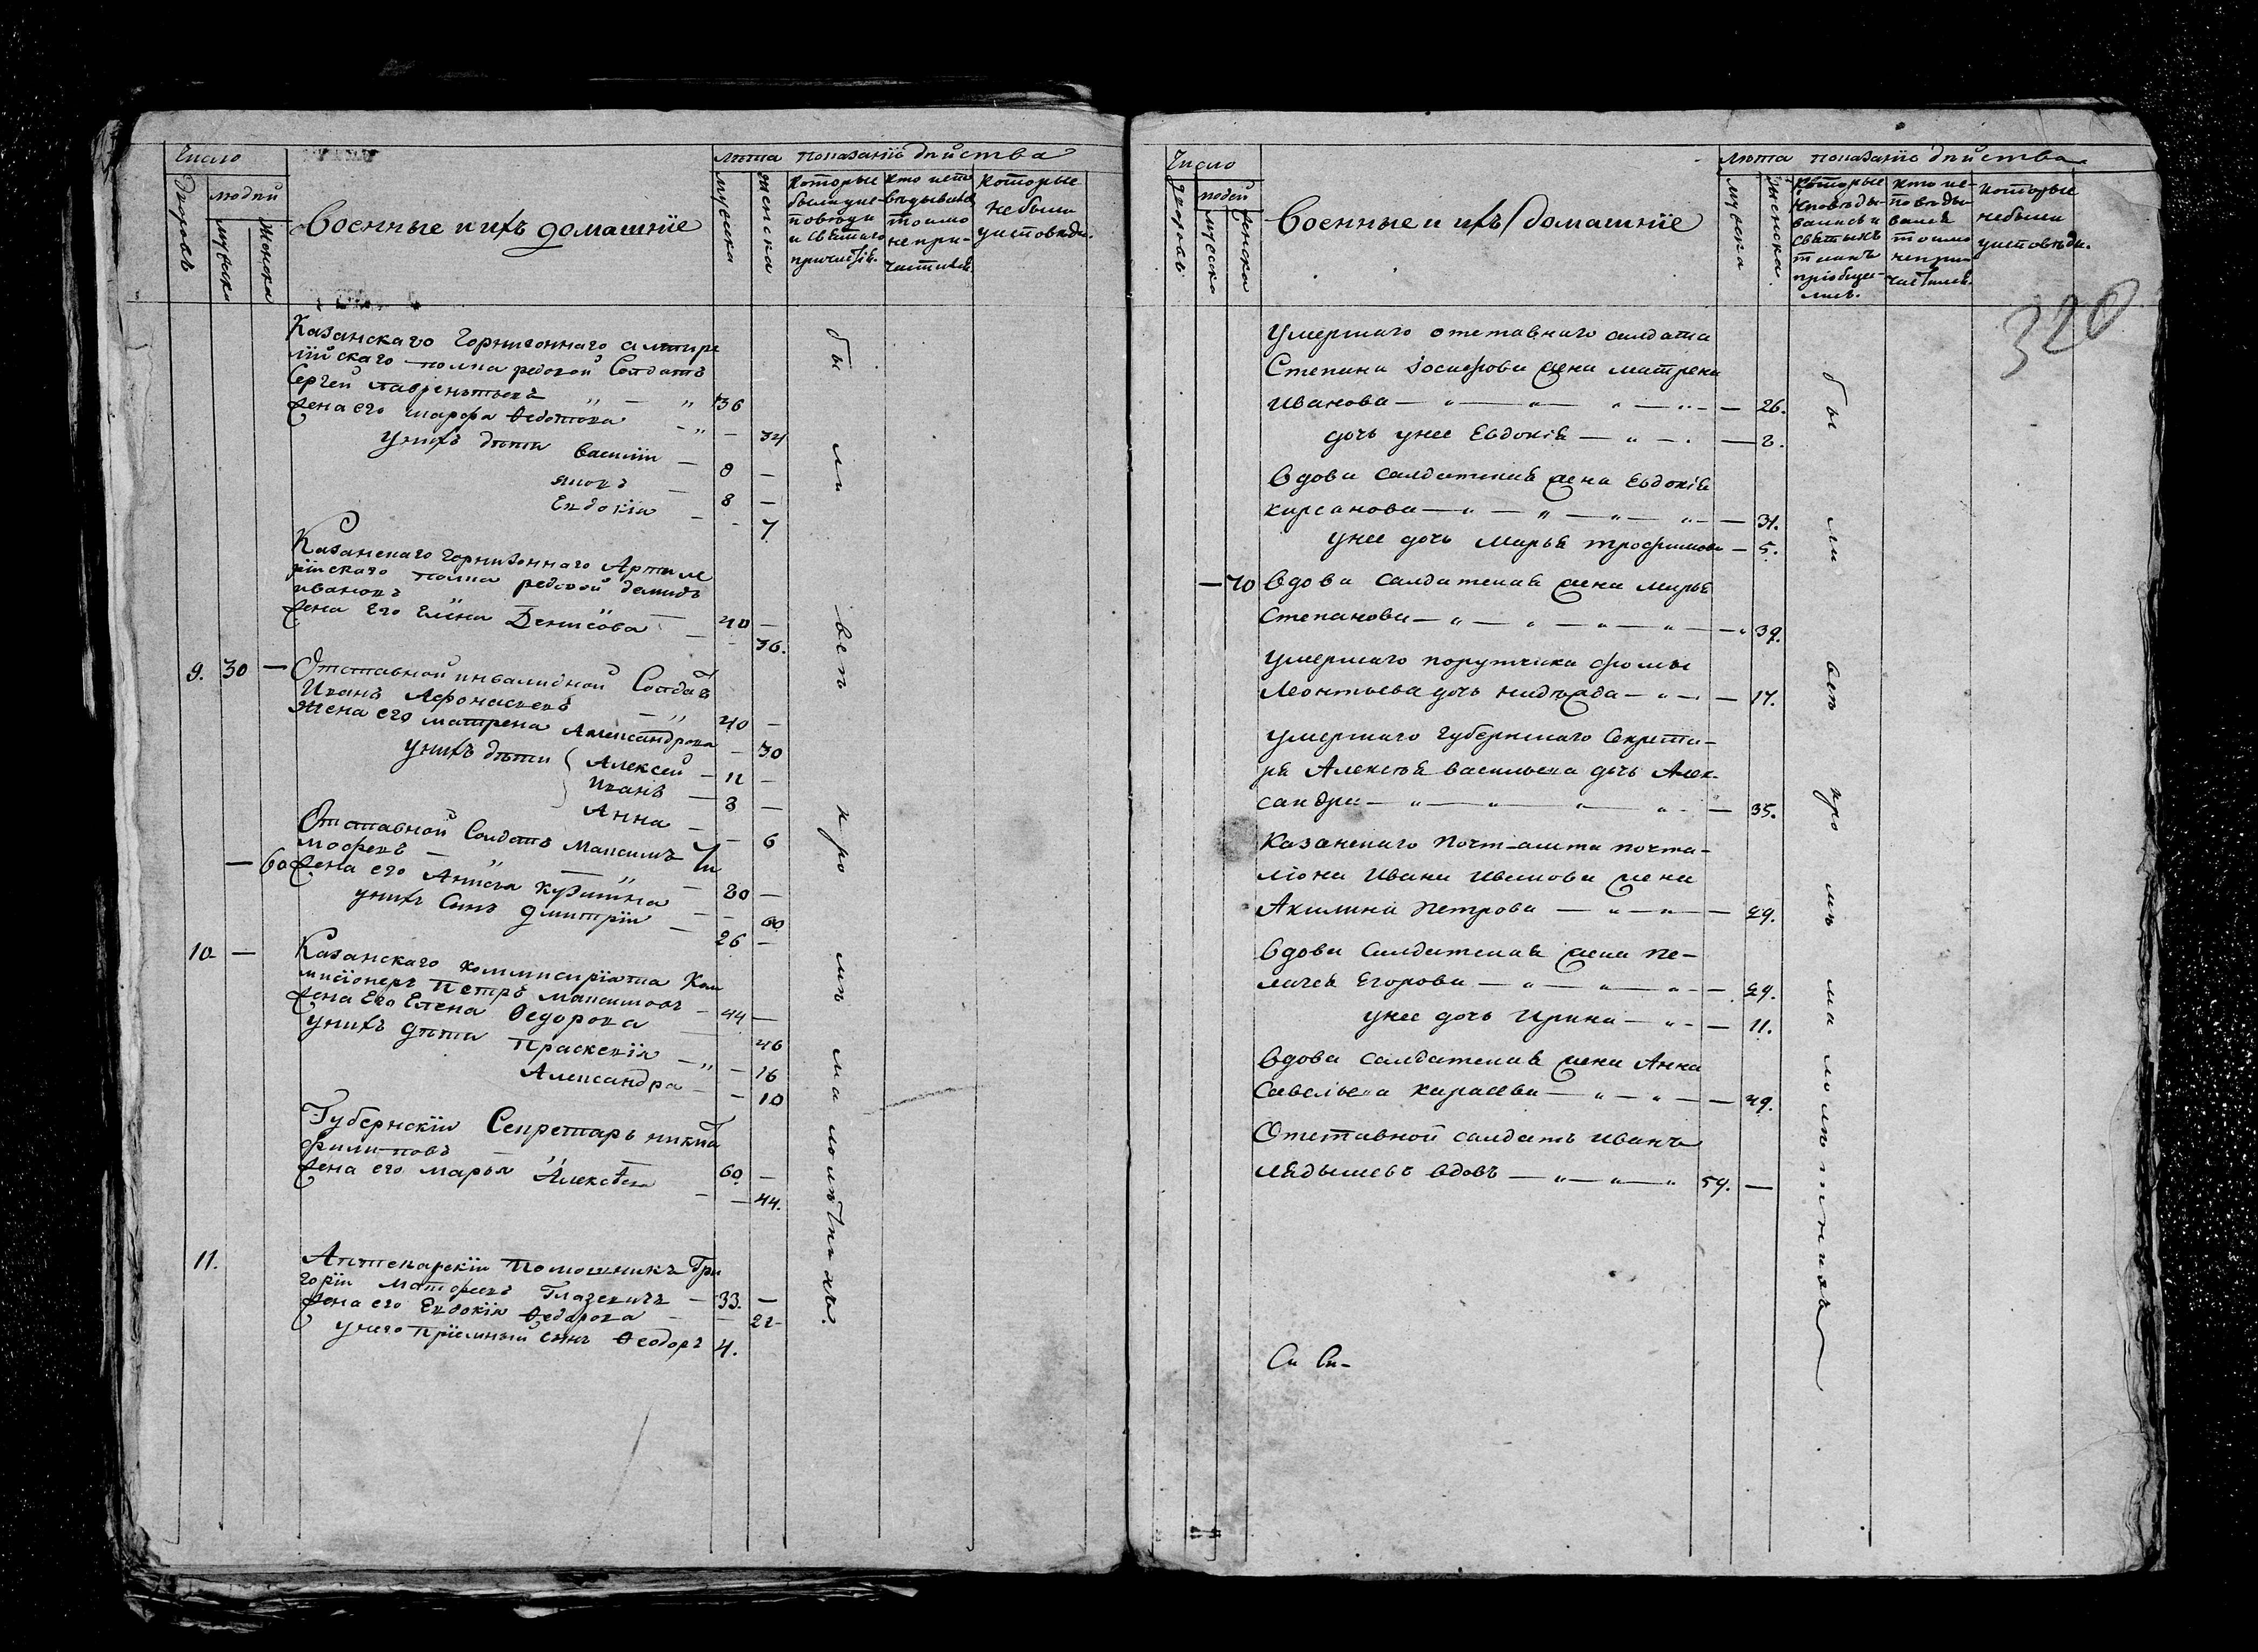 Число
людей
Дворовъ
мужска
Женска
Военные и ихъ домашнїе
лѣта показанїе дѣйства
мужска
женска
Которые были у исповѣди и Святаго причастїя.
Кто исповѣдывался токмо непричастился
Которые не были у исповѣди.
Казанскаго Горнизоннаго
полка редовой Солдатъ
Сергей Лаврентьевъ „ — „ 36
Жена его Марфа Ѳедотова — „ — 34
У нихъ дѣти Василїи — 8 —
Яковъ — 8 —
Евдокїа — — 7.
Казанскаго Горнизоннаго Артиле
рїйскаго полка редовой Демидъ
Ивановъ 40 —
Жена Его Елена Денисова — — 36.
9. 30 — Отставной инвалидной Солдатъ
Иванъ Афонасьевъ — „ 40 —
Жена его Матрена Александрова — 30
У нихъ дѣти Алексей — 11 —
Иванъ — 8 —
Анна — — 6
Отставной Солдатъ Максимъ Ти
мофевъ — „ — „ — 80 —
— 60 Жена его Анисья Кузмина — — 60.
У нихъ Сынъ Дмитрїи — 26 —
10 — Казанскаго коммисарїата Ком
мисїонеръ Петръ Максимовъ — 44 —
Жена Его Елена Ѳедорова 46
У нихъ дѣти Праскевїя — „ — 16
Александра — — 10
Губернскїи Секретарь Никита
Филиповъ — „ — 60. —
Жена его Марья Алексѣева — — 44.
11. Аптекарскїи Помошникъ Гри
горїи Матфеевъ — 33. —
Жена его Евдокїя Ѳедарова — — 22
У него прїемный сынъ Ѳеодоръ 4.
бы ли все про мъ ма ло лѣтныхъ.
Число
людей
дворовъ
мужска
женска
Военные и ихъ домашнїе
лѣта показанїе дѣйства
мужска
женска
Которые исповѣдывались и святыхъ таинъ прїобщились.
кто исповѣдывался токмо непричастился.
которые небыли у исповѣди.
320
Умершаго отставнаго салдата
Степана Іосифова жена Матрена
Иванова — „ — „ — „ — „ — — 26.
дочь у нее Евдокїя — „ — . — 2.
Вдова Салдатская жена Евдокїя
Кирсанова — „ — „ — „ — „ — — 31.
У нее дочь Марья Трофимова — 5.
— 70 Вдова Салдатская жена Марья
Степанова — „ — „ — „ — „ — 39.
Умершаго порутчика Фомы
Леонтьева дочь Надѣжда — „ — — 17.
Умершаго Губернскаго Секрета-
ря Алексѣя Васильева дочь Алек-
сандра — „ — „ — „ — „ — 35.
Казанскаго Почт-амта почта-
лїона Ивана Иванова жена
Акилина Петрова — „ — „ — — 49.
Вдова Салдатская жена Пе-
лагея Егорова — „ — „ — „ — 49.
у нее дочь Ирина — „ — — 11.
Вдова Салдатская жена Анна
Савельева Карасева — „ — „ — — 49.
Отставной салдатъ Иванъ
Лядышевъ вдовъ — „ — „ — „ 59. —
бы ли всѣ кро мѣ ма ло лѣтнихъ